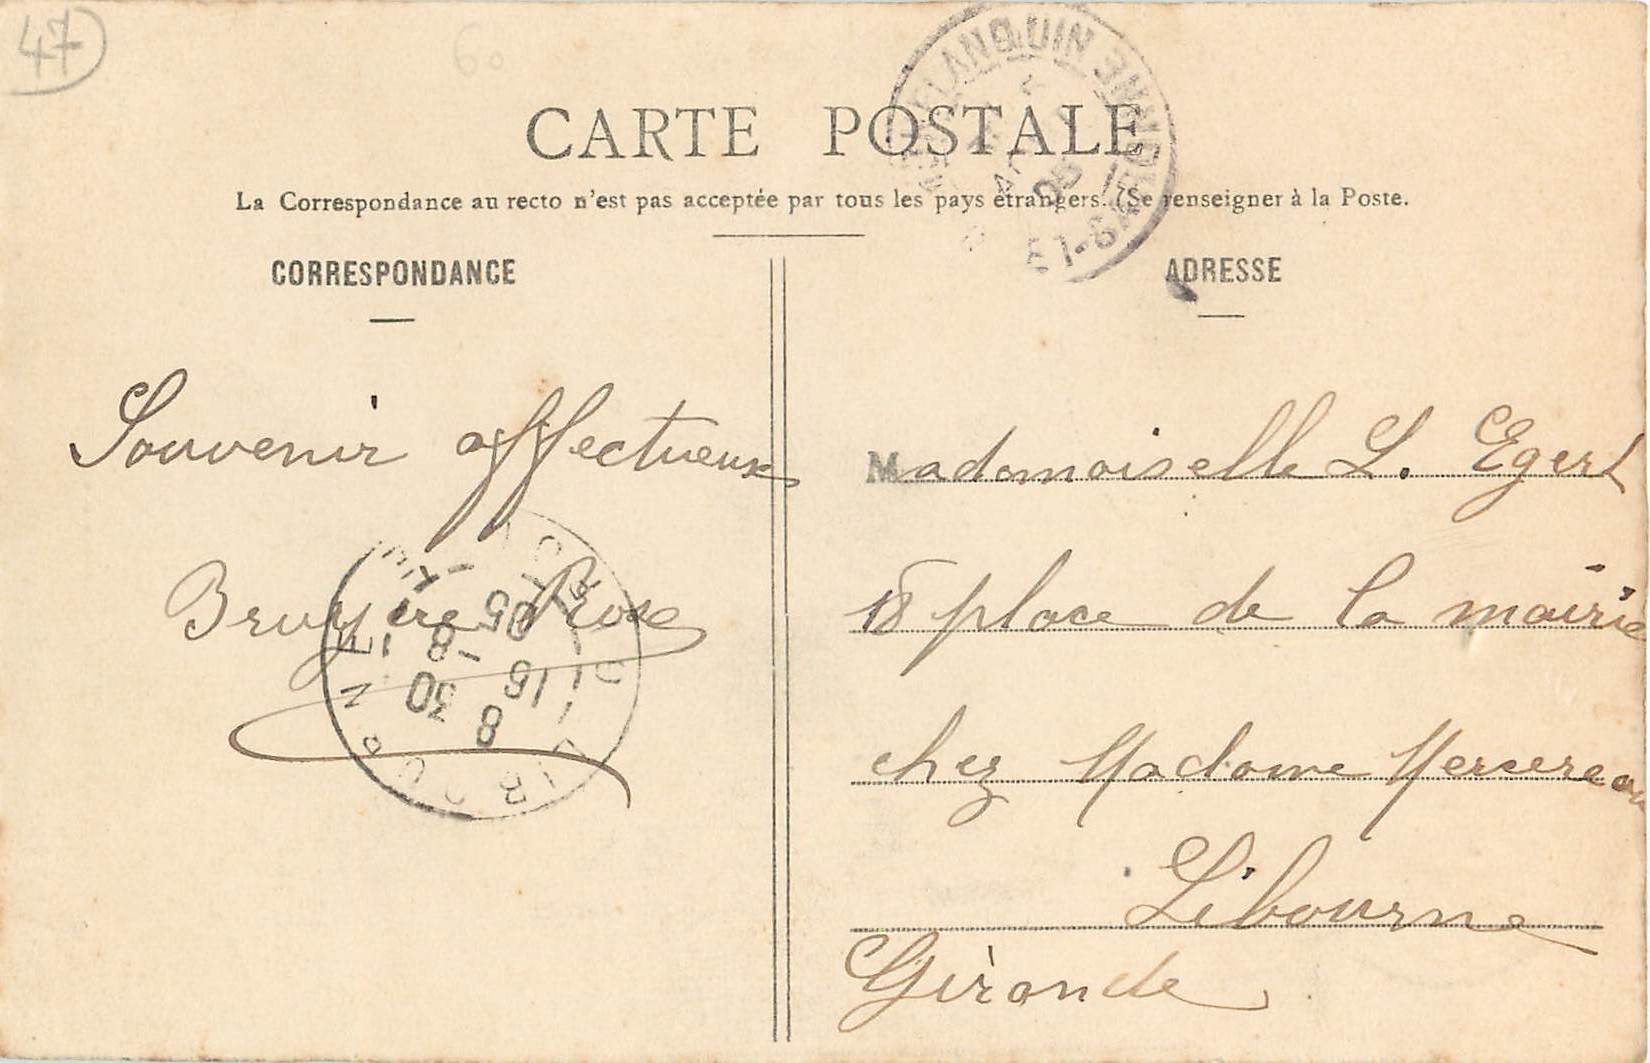 47
60
CARTE POSTALE
La Correspondance au recto n'est pas acceptée par tous les pays étrangers. (Se renseigner à la Poste.
CORRESPONDANCE
Souvenir affectueux
Bruyère Rose
ADRESSE
Mademoiselle L. Egert
18 place de la mairie
chez Madame Mercereau
Libourne
Gironde
LANQUIN
LIBOURNE
GIRONDE
8 30
15 -8
05